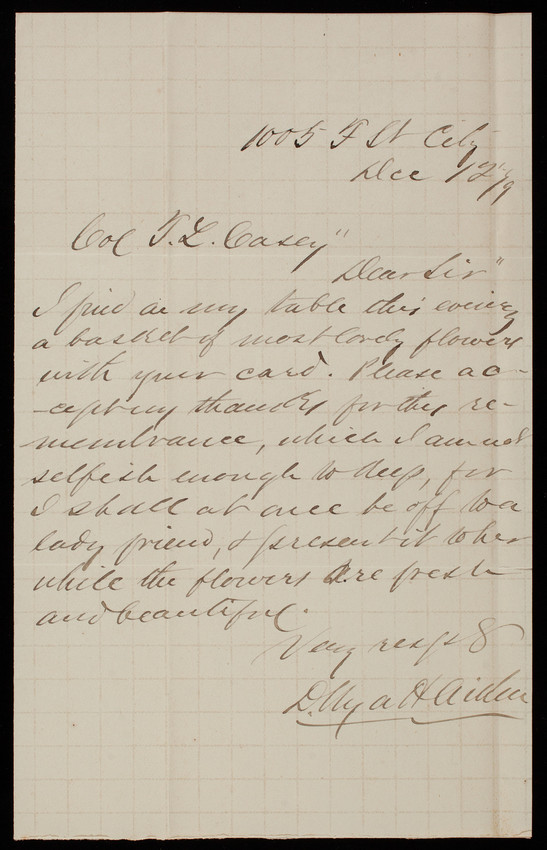 1005 F St City
Dec 12/79
Col T. L. Casey"
Dear Sir"
I find on my table this evening
a basket of most lovely flowers
with your card. Please ac-
-cept my thanks for this re-
membrance, which I am not
selfish enough to keep, for
I shall at once be off to a
lady friend, & present it to her
while the flowers are fresh
and beautiful.
Very resp &
D.